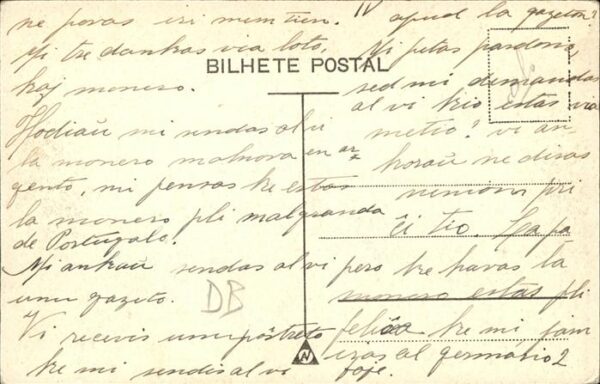 ne povas iri min tien.
Mi tre dankas via loto,
kaj monero.
Hodiaŭ mi sendas al vi
la monero malnova en ar
gento, mi pensas ke estas
la monero pli malgranda
de Portugalo.
Mi ankaŭ sendas al vi
unu gazeto.
Vi recevis unu
ke mi sendis al vi
apud la gazeton?
Mi petas pardono,
BILHETE POSTAL
sed mi demandas
al vi kio estas via
metio? vi an
koraŭ ne diras
nenion pri
ĉi tio.
pero ke havas la
monero estas pli
ke mi jam
al germanio 2
foje.
DB
N